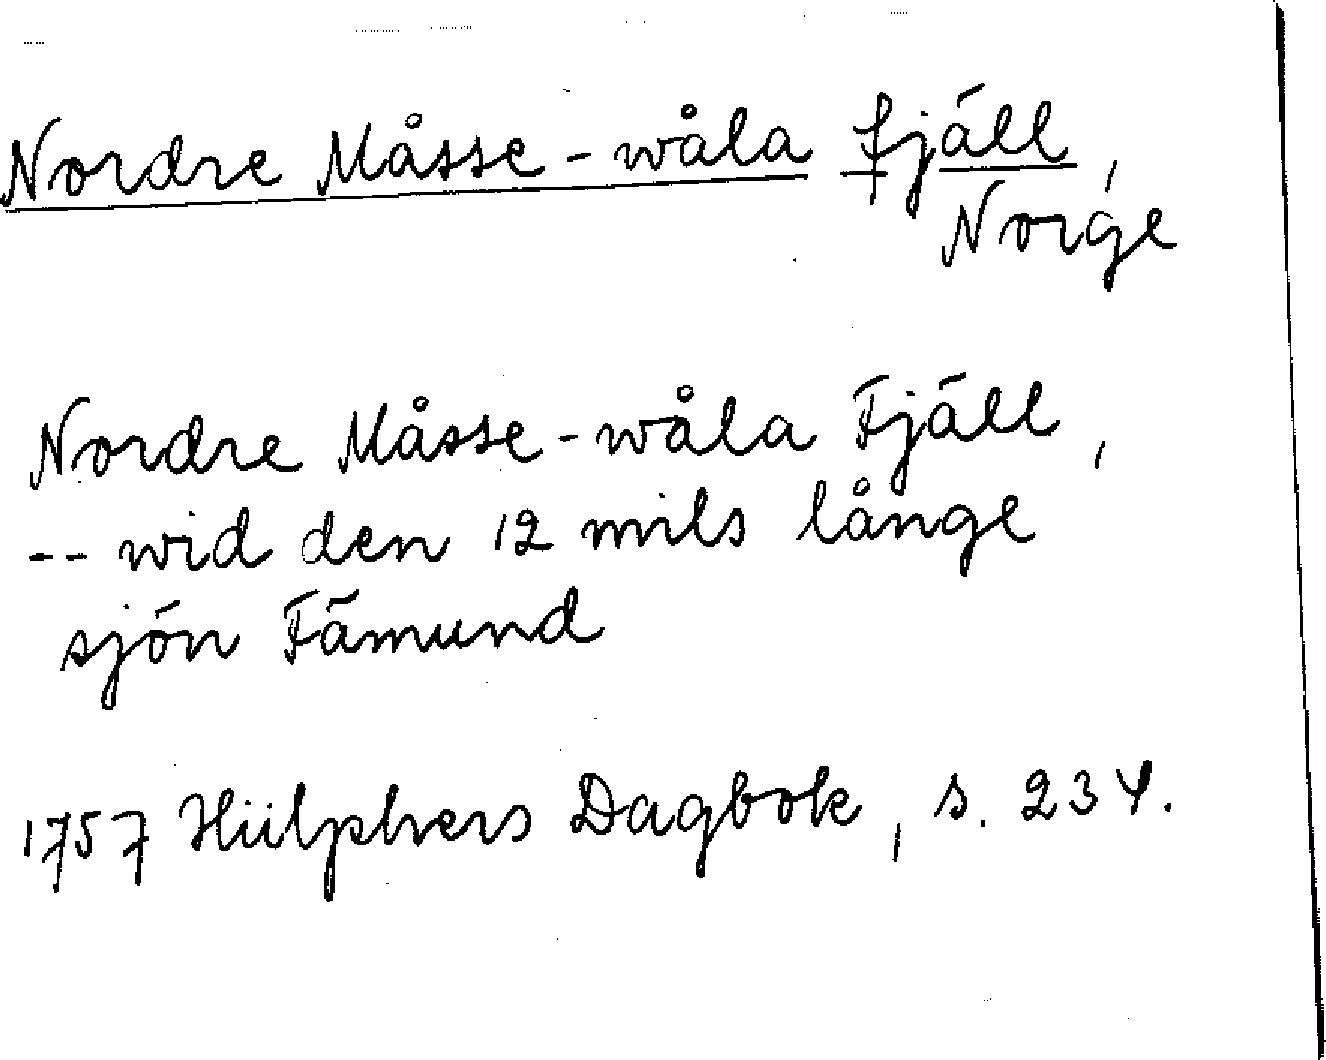 Nordre Måsse-wåla fjäll,
Norge
Nordre Måsse-wåla Fjäll,
-- wid den 12 mils långe
sjön Fämund
1757 Hülphers Dagbok, s. 234.